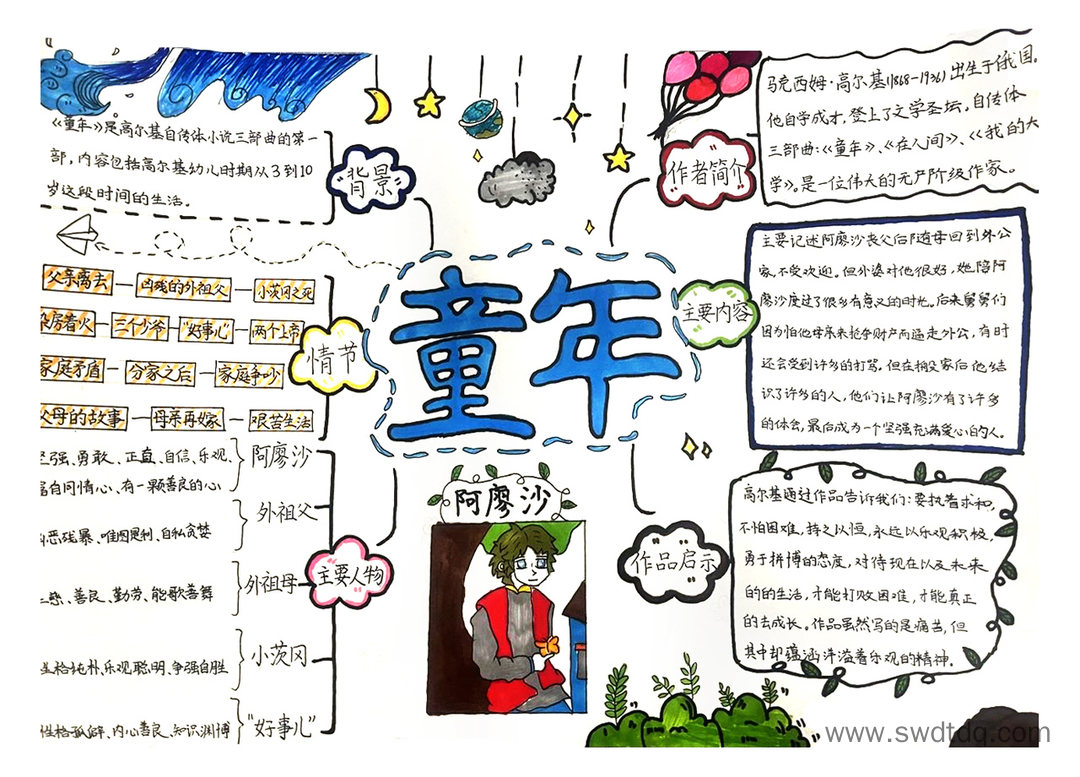 《童年》是高尔基自传体小说三部曲的第一
部，内容包括高尔基幼儿时期从3到10
岁这段时间的生活。
背景
作者简介
马克西姆·高尔基(1868-1936)出生于俄国。
他自学成才，登上了文学圣坛。自传体
三部曲:《童年》、《在人间》、《我的大
学》。是一位伟大的无产阶级作家。
童年
情节
父亲离去
凶残的外祖父
小茨冈之死
染房着火
三个少爷
"好事儿"
两个上帝
家庭矛盾
分家之后
家庭争吵
父母的故事
母亲再嫁
艰苦生活
主要内容
主要记述阿廖沙丧父后随母回到外公
家，不受欢迎。但外婆对他很好，她陪阿
廖沙度过了很多有意义的时光。后来舅舅们
因为怕他母亲来抢夺财产而逼走外公，有时
还会受到许多的打骂。但在搬家后他结
识了许多的人，他们让阿廖沙有了许多
的体会，最后成为一个坚强充满爱心的人。
主要人物
坚强、勇敢、正直、自信、乐观、
富有同情心、有一颗善良的心
阿廖沙
恶残暴、唯图是利、自私贪婪
外祖父
慈、善良、勤劳、能歌善舞
外祖母
性格纯朴、乐观聪明、争强自胜
小茨冈
性格孤僻、内心善良、知识渊博
"好事儿"
阿廖沙
作品启示
高尔基通过作品告诉我们:要执着求和，
不怕困难，持之以恒，永远以乐观积极，
勇于拼博的态度，对待现在以及未来
的的生活，才能打败困难，才能真正
的去成长。作品虽然写的是痛苦，但
其中却蕴涵洋溢着乐观的精神。
www.swdtdq.com